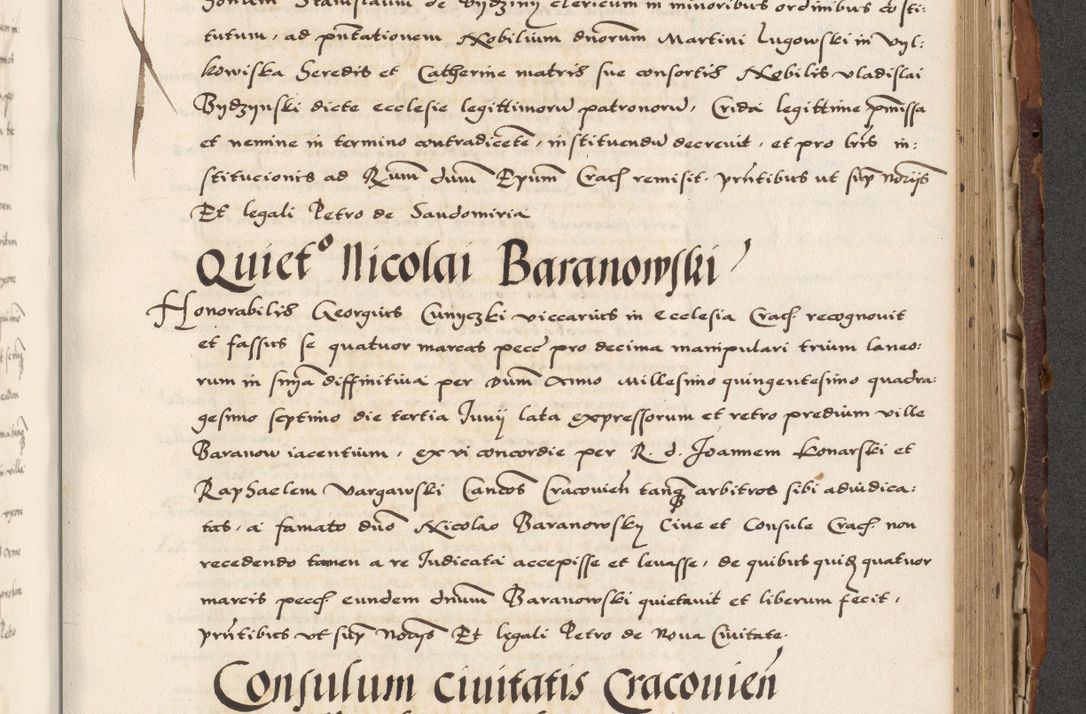 Stanislaum de Bydziny clericum in minoribus ordinibus co sti:
tutum, ad pntationem Nobilium dnorum Martini Lugowski in Vyl:
kowiska heredis et Catherine matris sue consortis Nobilis Vladislai
Bydzynski dicte ecclesie legittimoru patronoru, Crida legittime pmissa
et nemine in termino contradicete, instituendu decreuit, et pro lris in:
stitucionis ad Rum dnum Epum Crac remisit. prntibus ut sup notarijs
Et legali Petro de Sandomiria
Quieto Nicolai Baranowski
Honorabilis Georgius Cunyczki viccarius in ecclesia Crac recognouit
et fassus se quatuor marcas pecc pro decima manipulari trium laneo:
rum in snia diffinitiua per dnum anno Millesimo quingentesimo quadra:
gesimo septimo die tertia Junij lata expressorum et retro predium ville
Baranow iacentium, ex vi concordie per R. d. Joannem Konarski et
Raphaelem Vargawski Cancos Cracouien tanq arbitros sibi adiudica:
tas, a famato dno Nicolao Baranowsky Ciue et Consule Crac non
recedendo tamen a re Iudicata accepisse et leuasse, de quibus quidem quatuor
marcis pecc eundem dnum Baranowski quietauit et liberum fecit,
prntibus ut sup notarijs Et legali Petro de Noua Ciuitate.
Consulum ciuitatis Cracouien